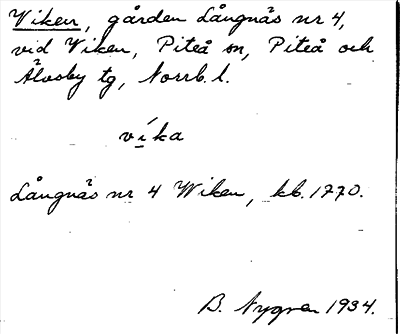 Viken, gården Långnäs nr 4,
vid Viken, Piteå sn, Piteå och
Älvsby tg, Norrb. l.
ví̲ka
Långnäs nr 4 Wiken, kb. 1770.
B. Nygren 1934.